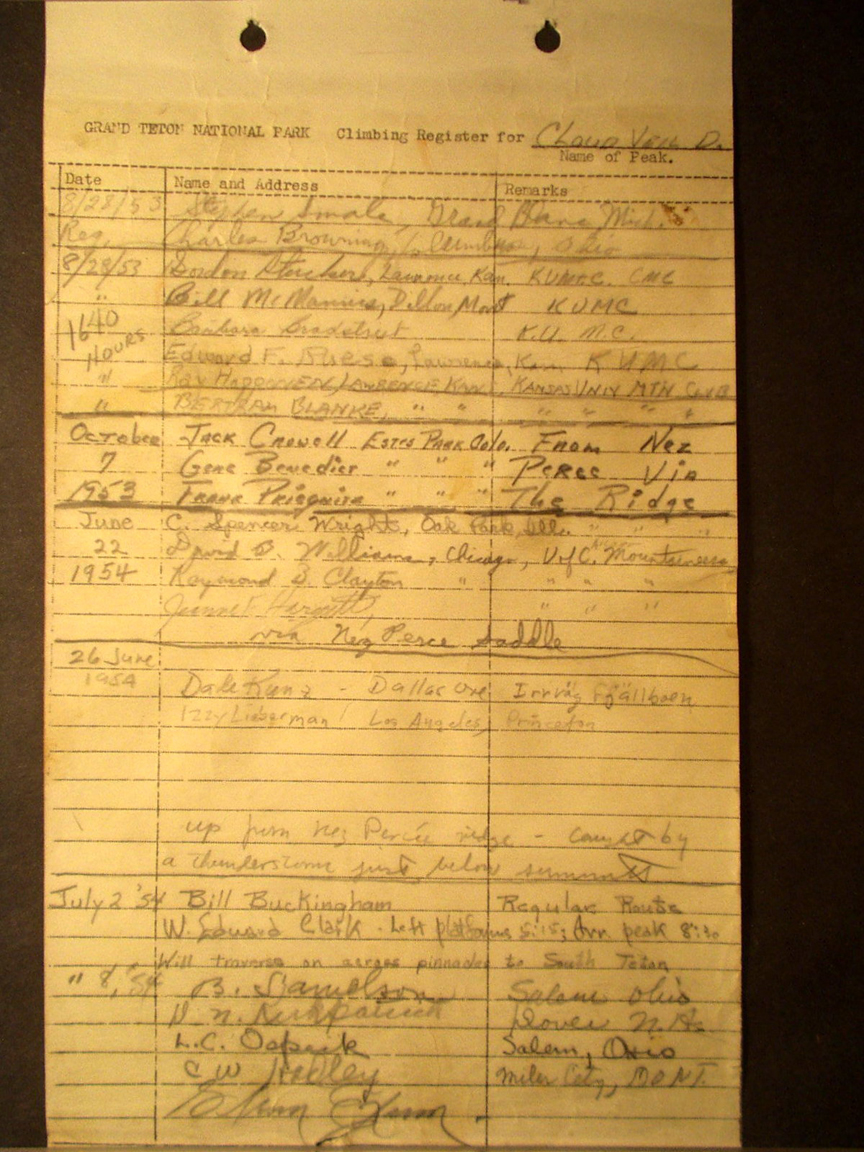 GRAND TETON NATIONAL PARK Climbing Register for Cloud Veil D.
Name of Peak.
Date Name and Address Remarks
8/28/53 Stephen Smale, Grand Blanc Mich.
Reg. Charles Browning, Columbus, Ohio
8/28/53 Gordon Lawrence, Kan. KUMC. CMC
" Bill McMannis, Dillon, Mont KUMC
1640 Barbara K.U. M.C.
HOURS Edward F. Ruese, Lawrence, Kan KUMC
" Ray LAWRENCE KANS. KANSAS UNIV MTN CLUB
" BERTRAM BLANKE, " " " " " "
October Jack Crowell Estes Park Colo. From Nez
7 Gene Benedict " " " Perce Via
1953 Frank " " " The Ridge
June C. Spencer Wright, Oak Park, Ill. " " "
22 David B. Williams, Chicago, U of C. Mountaineers
1954 Raymond B. Clayton " " " "
" "
via Nez Perce Saddle
26 June
1954 Dale Kunz - Dallas Ore
Izzy Lieberman Los Angeles, Princeton
up from Nez Percée ridge - caught by
a thunderstorm just below summit
July 2 '54 Bill Buckingham Regular Route
W. Edward Clark - Left platforms 5:15; Arr. peak 8:30
Will traverse on across pinnacles to South Teton
" 8, '54 B. Salem Ohio
D. N. Kirkpatrick Dover N.H.
L.C. Salem, Ohio
C W Miles City, MONT.